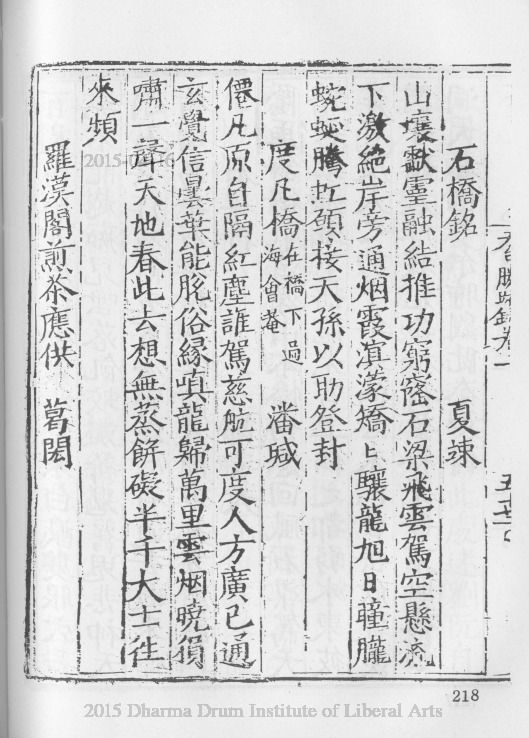 天台勝蹟錄卷一
石橋銘 夏竦
山壤獻靈融結推功窮窿石梁飛雲駕空懸流
下激絕岸旁通烟霞澒濛矯〻驤龍旭日曈朧
蜿蜒騰虹頭接天孫以助登封
度凡橋在橋下過海會菴 潘珹
僊凡原自隔紅塵誰駕慈航可度人方廣已通
玄覺信曇華能脫俗緣嗔龍歸萬里雲烟曉猿
嘯一聲天地春此去想無蒸餅礙半千大士往
來頻
羅漢閣煎茶應供 葛閎
218
2015 Dharma Drum Institute of Liberal Arts